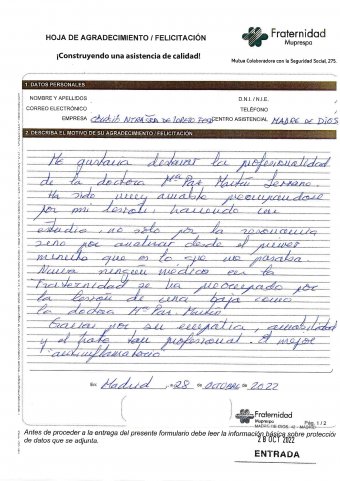 HOJA DE AGRADECIMIENTO / FELICITACIÓN
¡Construyendo una asistencia de calidad!
Fraternidad
Muprespa
Mutua Colaboradora con la Seguridad Social, 275
1. DATOS PERSONALES
NOMBRE Y APELLIDOS
D.N.I. / N.I.E.
CORREO ELECTRÓNICO
TELÉFONO
EMPRESA COLEGIO NTRA SRA DE LORETO CENTRO ASISTENCIAL MADRE DE DIOS
2. DESCRIBA EL MOTIVO DE SU AGRADECIMIENTO / FELICITACIÓN
Me gustaria destacar la profesionalidad
de la doctora Mª Paz Martín Serrano.
Ha sido muy amable preocupandose
por mi lesión, haciendo un
estudio no solo por la resonancia
sino por analizar desde el primer
minuto que es lo que me pasaba
Nunca ningún medico en la
Fraternidad se ha preocupado por
la lesión de una baja como
la doctora Mª Paz Martín
Gracias por su empatia, amabilidad
y el trato tan profesional. El mejor
antiinflamatorio
En: Madrid, 28 de OCTUBRE de 2022
Fraternidad
Muprespa
Pág. 1 / 2
MADRE DE DIOS, 42 - MADRID
Antes de proceder a la entrega del presente formulario debe leer la información básica sobre protección
de datos que se adjunta.
28 OCT 2022
ENTRADA